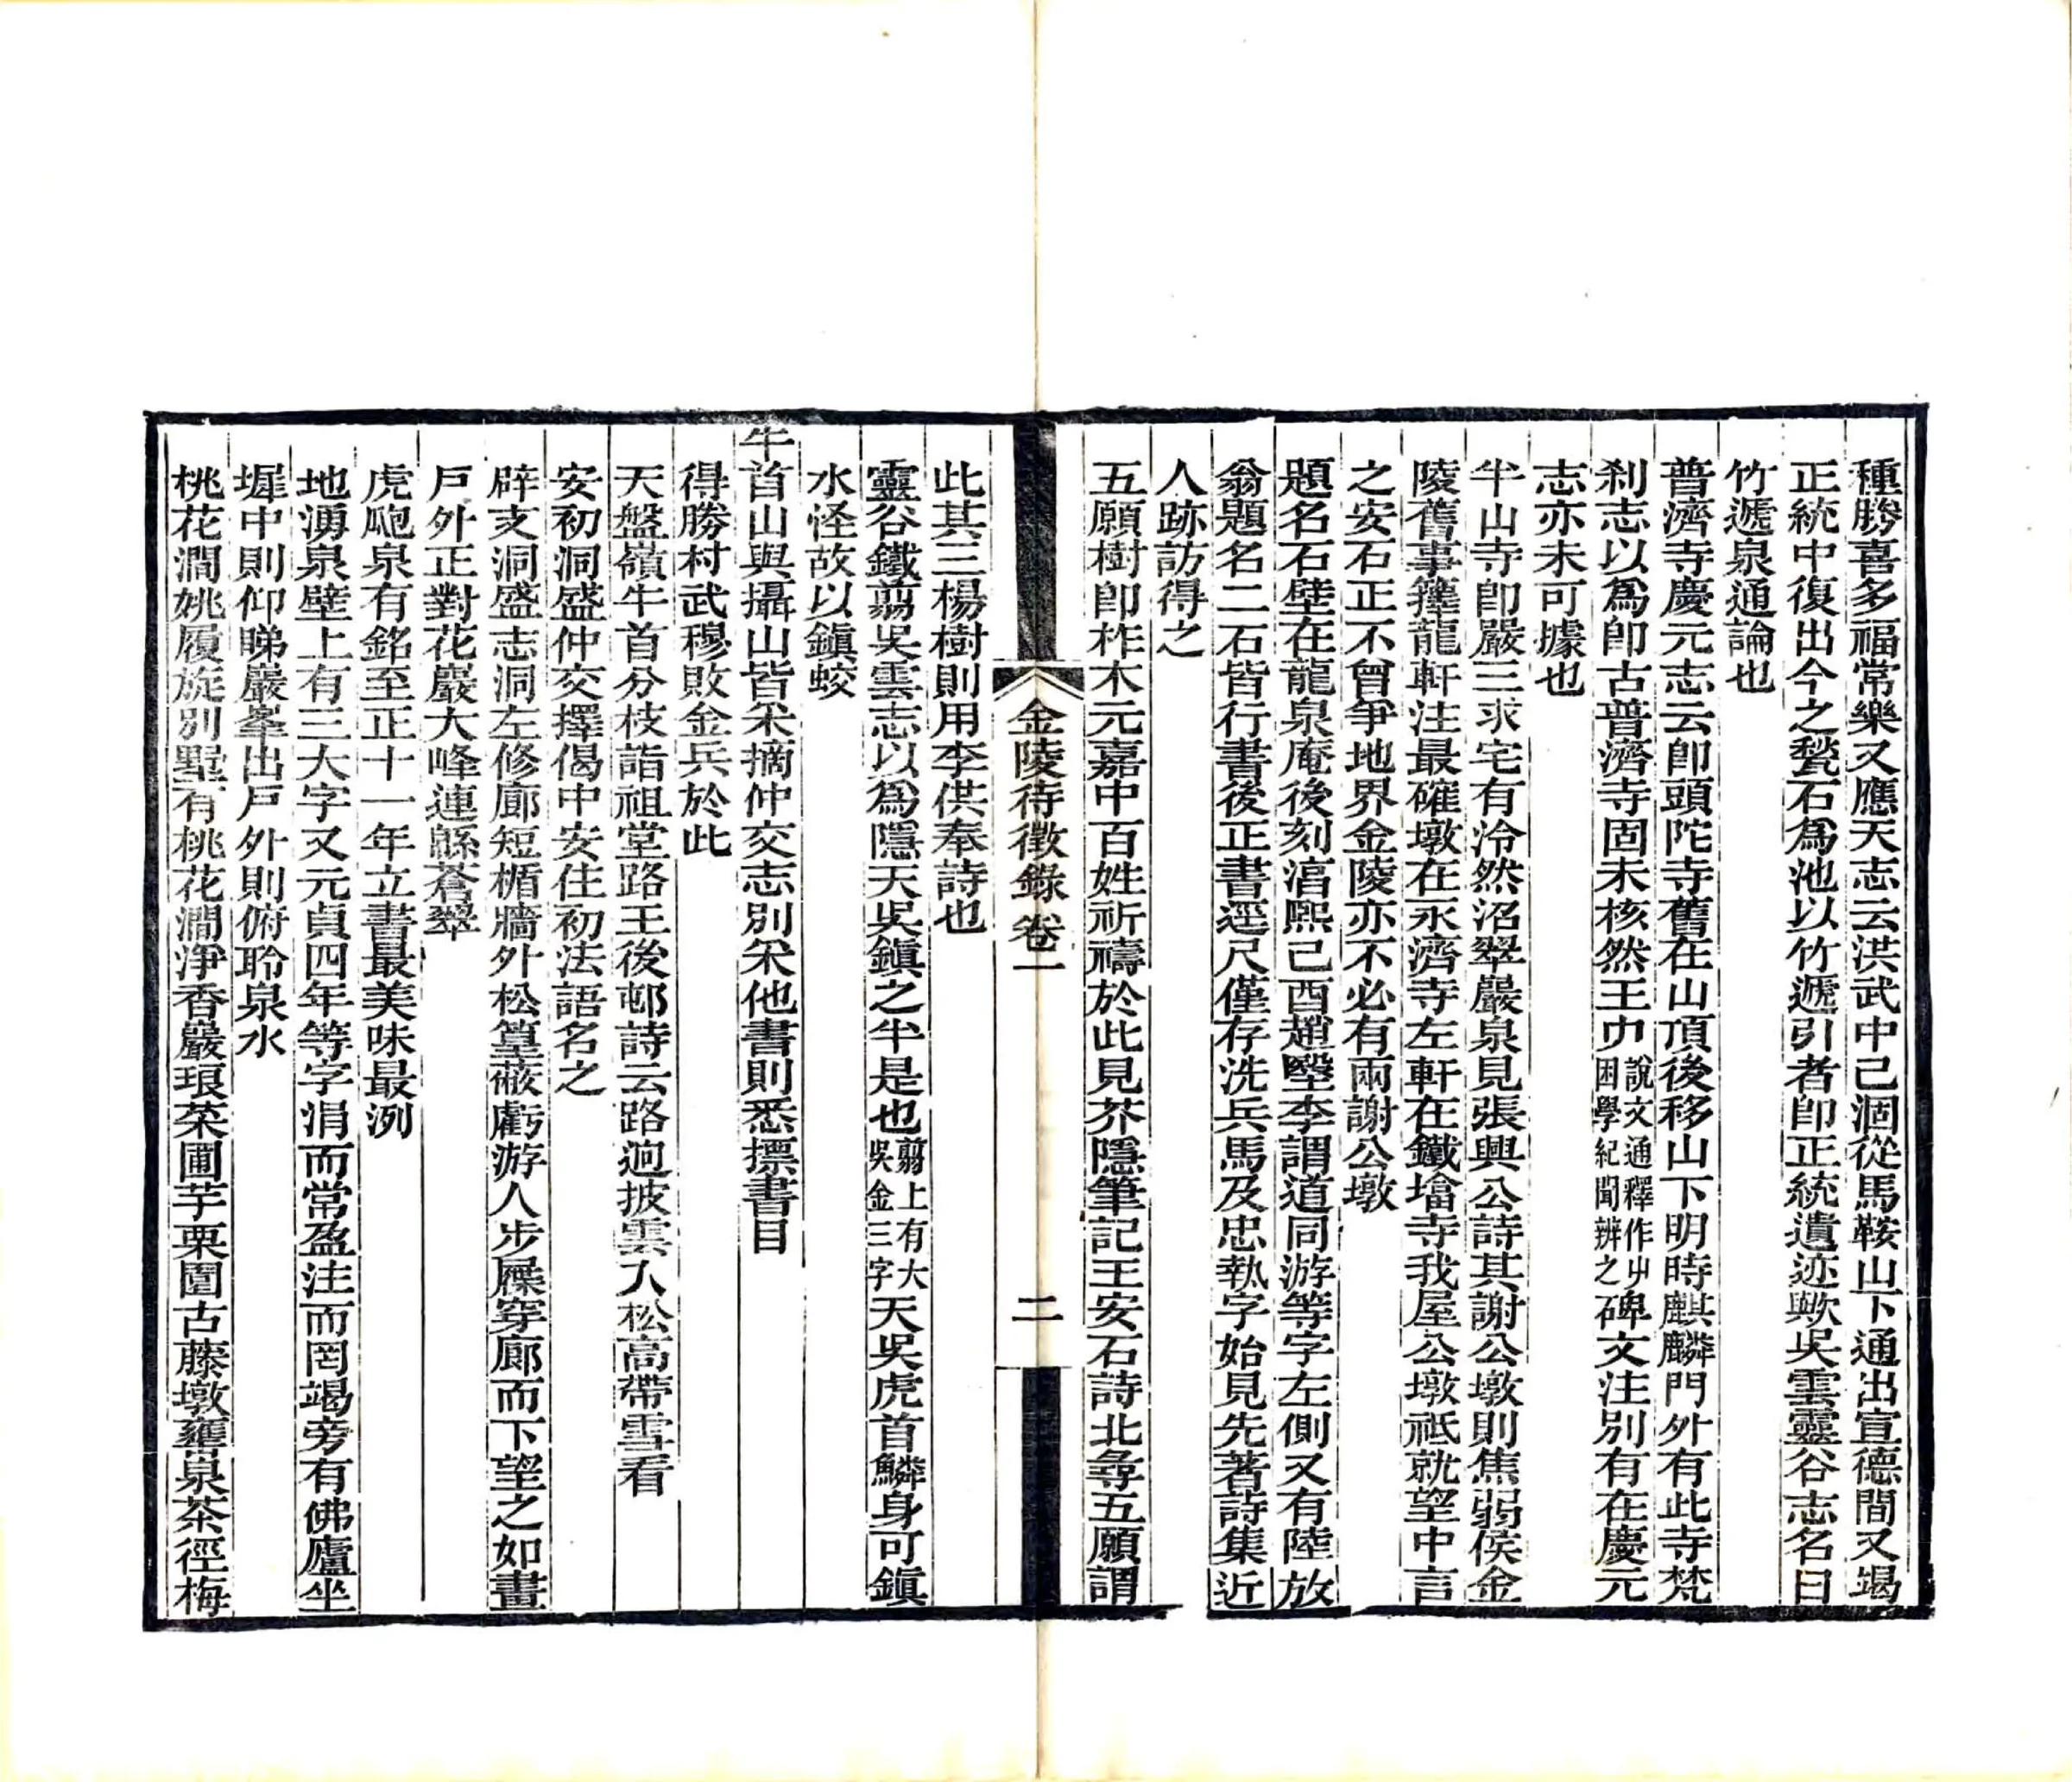 種勝喜多福常樂又應天志云洪武中已涸從馬鞍山下通出宣德間又竭
正統中復出今之甃石爲池以竹遞引者卽正統遺迹歟吳雲靈谷志名曰
竹遞泉通論也
普濟寺慶元志云卽頭陀寺舊在山頂後移山下明時麒麟門外有此寺梵
刹志以爲卽古普濟寺固未核然王屮說文通釋作屮困學紀聞辨之碑文注別有在慶元
志亦未可據也
半山寺卽嚴三求宅有泠然沼翠巖泉見張興公詩其謝公墩則焦弱侯金
陵舊事籜龍軒注最確墩在永濟寺左軒在鐵塔寺我屋公墩祇就望中言
之安石正不曾爭地界金陵亦不必有兩謝公墩
題名石壁在龍泉庵後刻湻熙己酉趙　李謂道同游等字左側又有陸放
翁題名二石皆行書後正書逕尺僅存洗兵馬及忠執字始見先著詩集近
人跡訪得之
五願樹卽柞木元嘉中百姓祈禱於此見芥隱筆記王安石詩北尋五願謂
金陵待徵錄 卷一 二
此其三楊樹則用李供奉詩也
靈谷鐵翦吳雲志以爲隱天吳鎮之半是也翦上有大吳金三字天吳虎首鱗身可鎮
水怪故以鎮蛟
牛首山與攝山皆采摘仲交志別采他書則悉摽書目
得勝村武穆敗金兵於此
天盤嶺牛首分枝詣祖堂路王後邨詩云路迥披雲入松高帶雪看
安初洞盛仲交擇偈中安住初法語名之
辟支洞盛志洞左修廊短楯牆外松篁蔽虧游人步屧穿廊而下望之如畫
戶外正對花巖大峰連緜蒼翠
虎跑泉有銘至正十一年立書最美味最洌
地湧泉壁上有三大字又元貞四年等字涓而常盈注而罔竭旁有佛廬坐
墀中則仰睇巖峯出戶外則俯聆泉水
桃花澗姚履旋別墅有桃花澗淨香巖琅菜圃芋栗園古藤墩甕泉茶徑梅